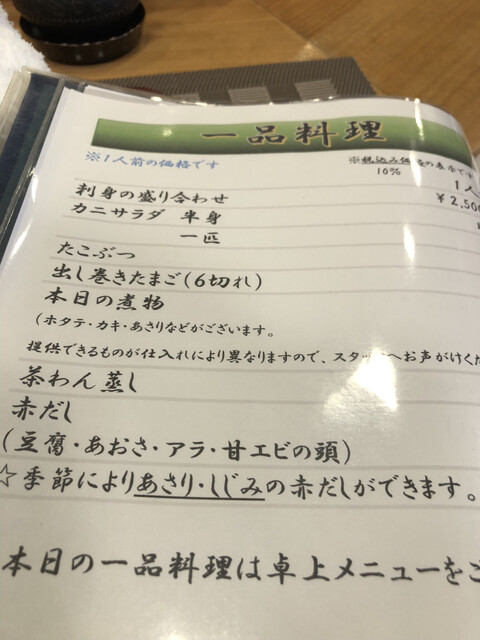 一品料理
※1人前の価格です
※税込み価格の表示です
10%
1人
刺身の盛り合わせ ¥2,500
カニサラダ 半身
一匹
たこぶつ
出し巻きたまご(6切れ)
本日の煮物
(ホタテ・カキ・あさりなどがございます。
提供できるものが仕入れにより異なりますので、スタッフへお声がけくだ
茶わん蒸し
赤だし
(豆腐・あおさ・アラ・甘エビの頭)
☆季節によりあさり・しじみの赤だしができます。
本日の一品料理は卓上メニューをご